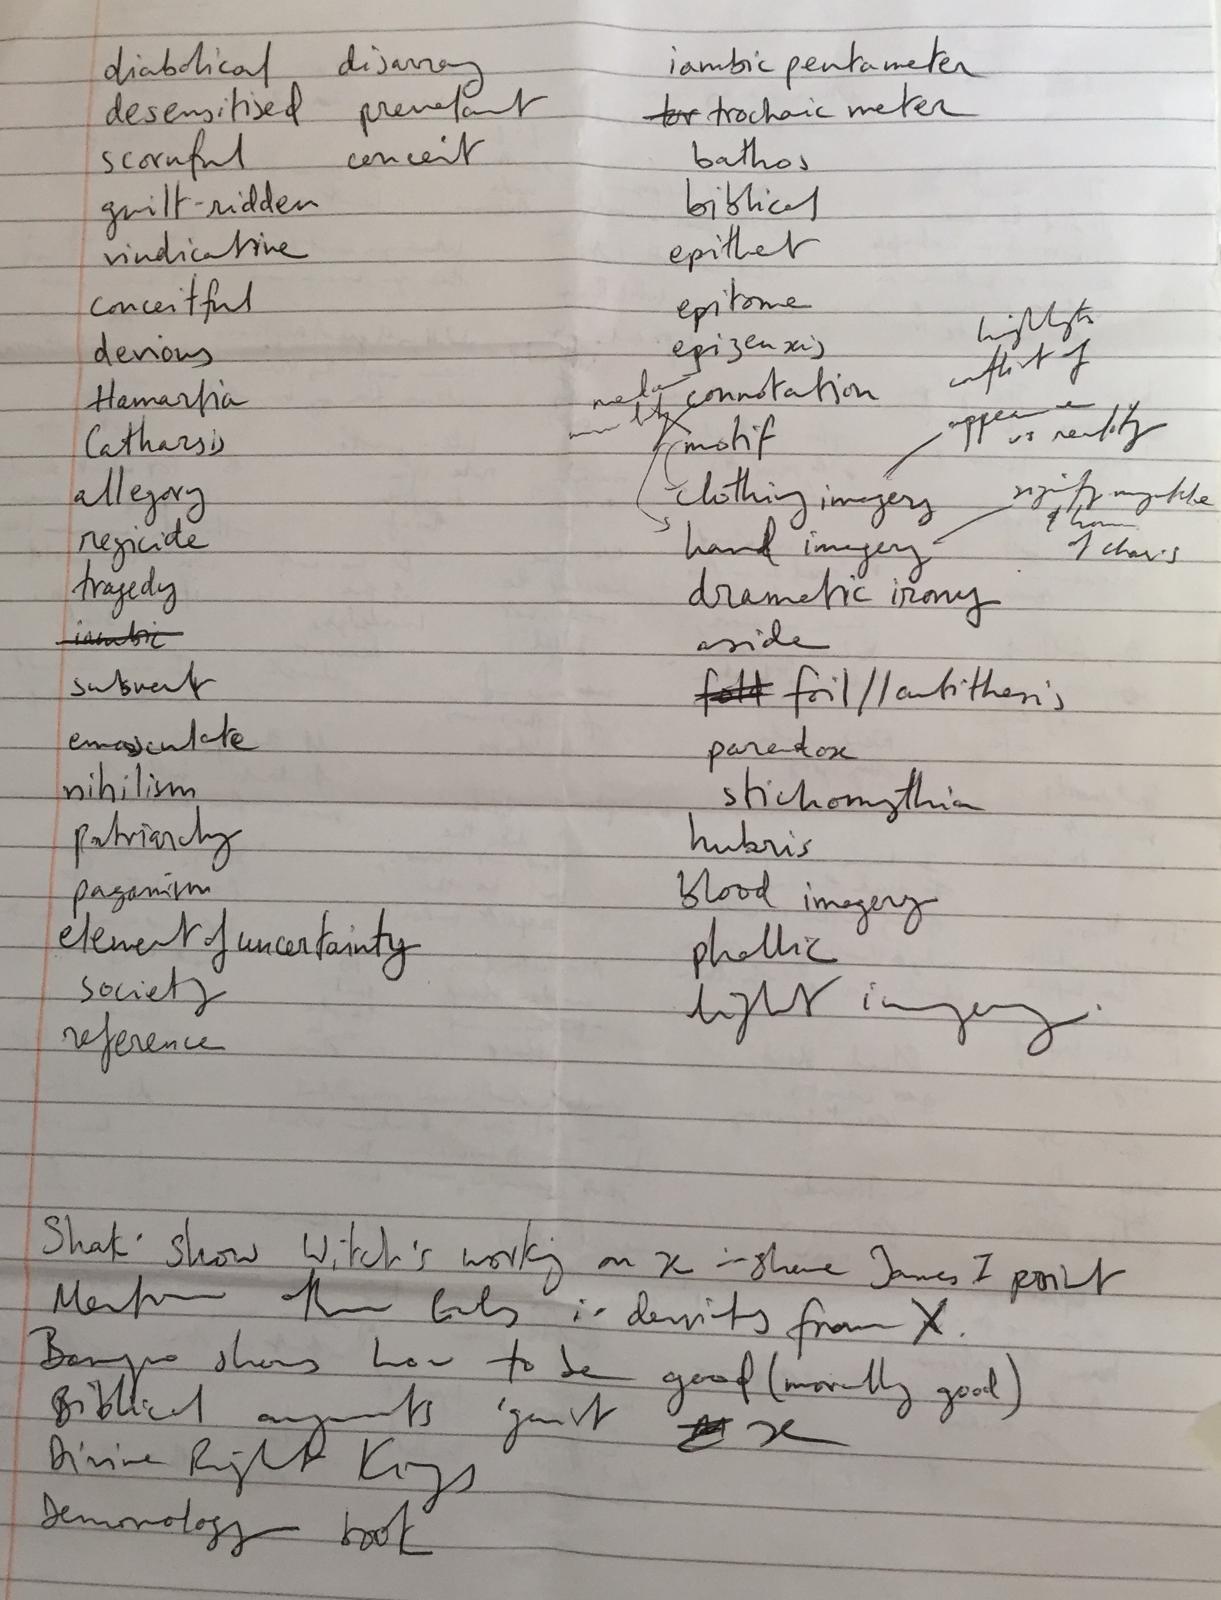 diabolical disarray
desensitised
scornful conceit
guilt-ridden
vindicative
conceitful
devious
Hamartia
Catharsis
allegory
regicide
tragedy
iambic
subvert
emasculate
nihilism
patriarchy
paganism
element of uncertainty
society
reference
iambic pentameter
trochaic meter
bathos
biblical
epithet
epitome
epizeuxis
connotation
motif
clothing imagery
hand imagery
dramatic irony
aside
foil//antithesis
paradox
stichomythia
hubris
blood imagery
phallic
light imagery.
highlights
conflict of
appearance
vs reality
signify
of
Shak' show Witch's working on x James I point
from X.
Banquo shows how to be good (morally good)
Biblical arguments 'gainst x
Divine Right Kings
Demonology book